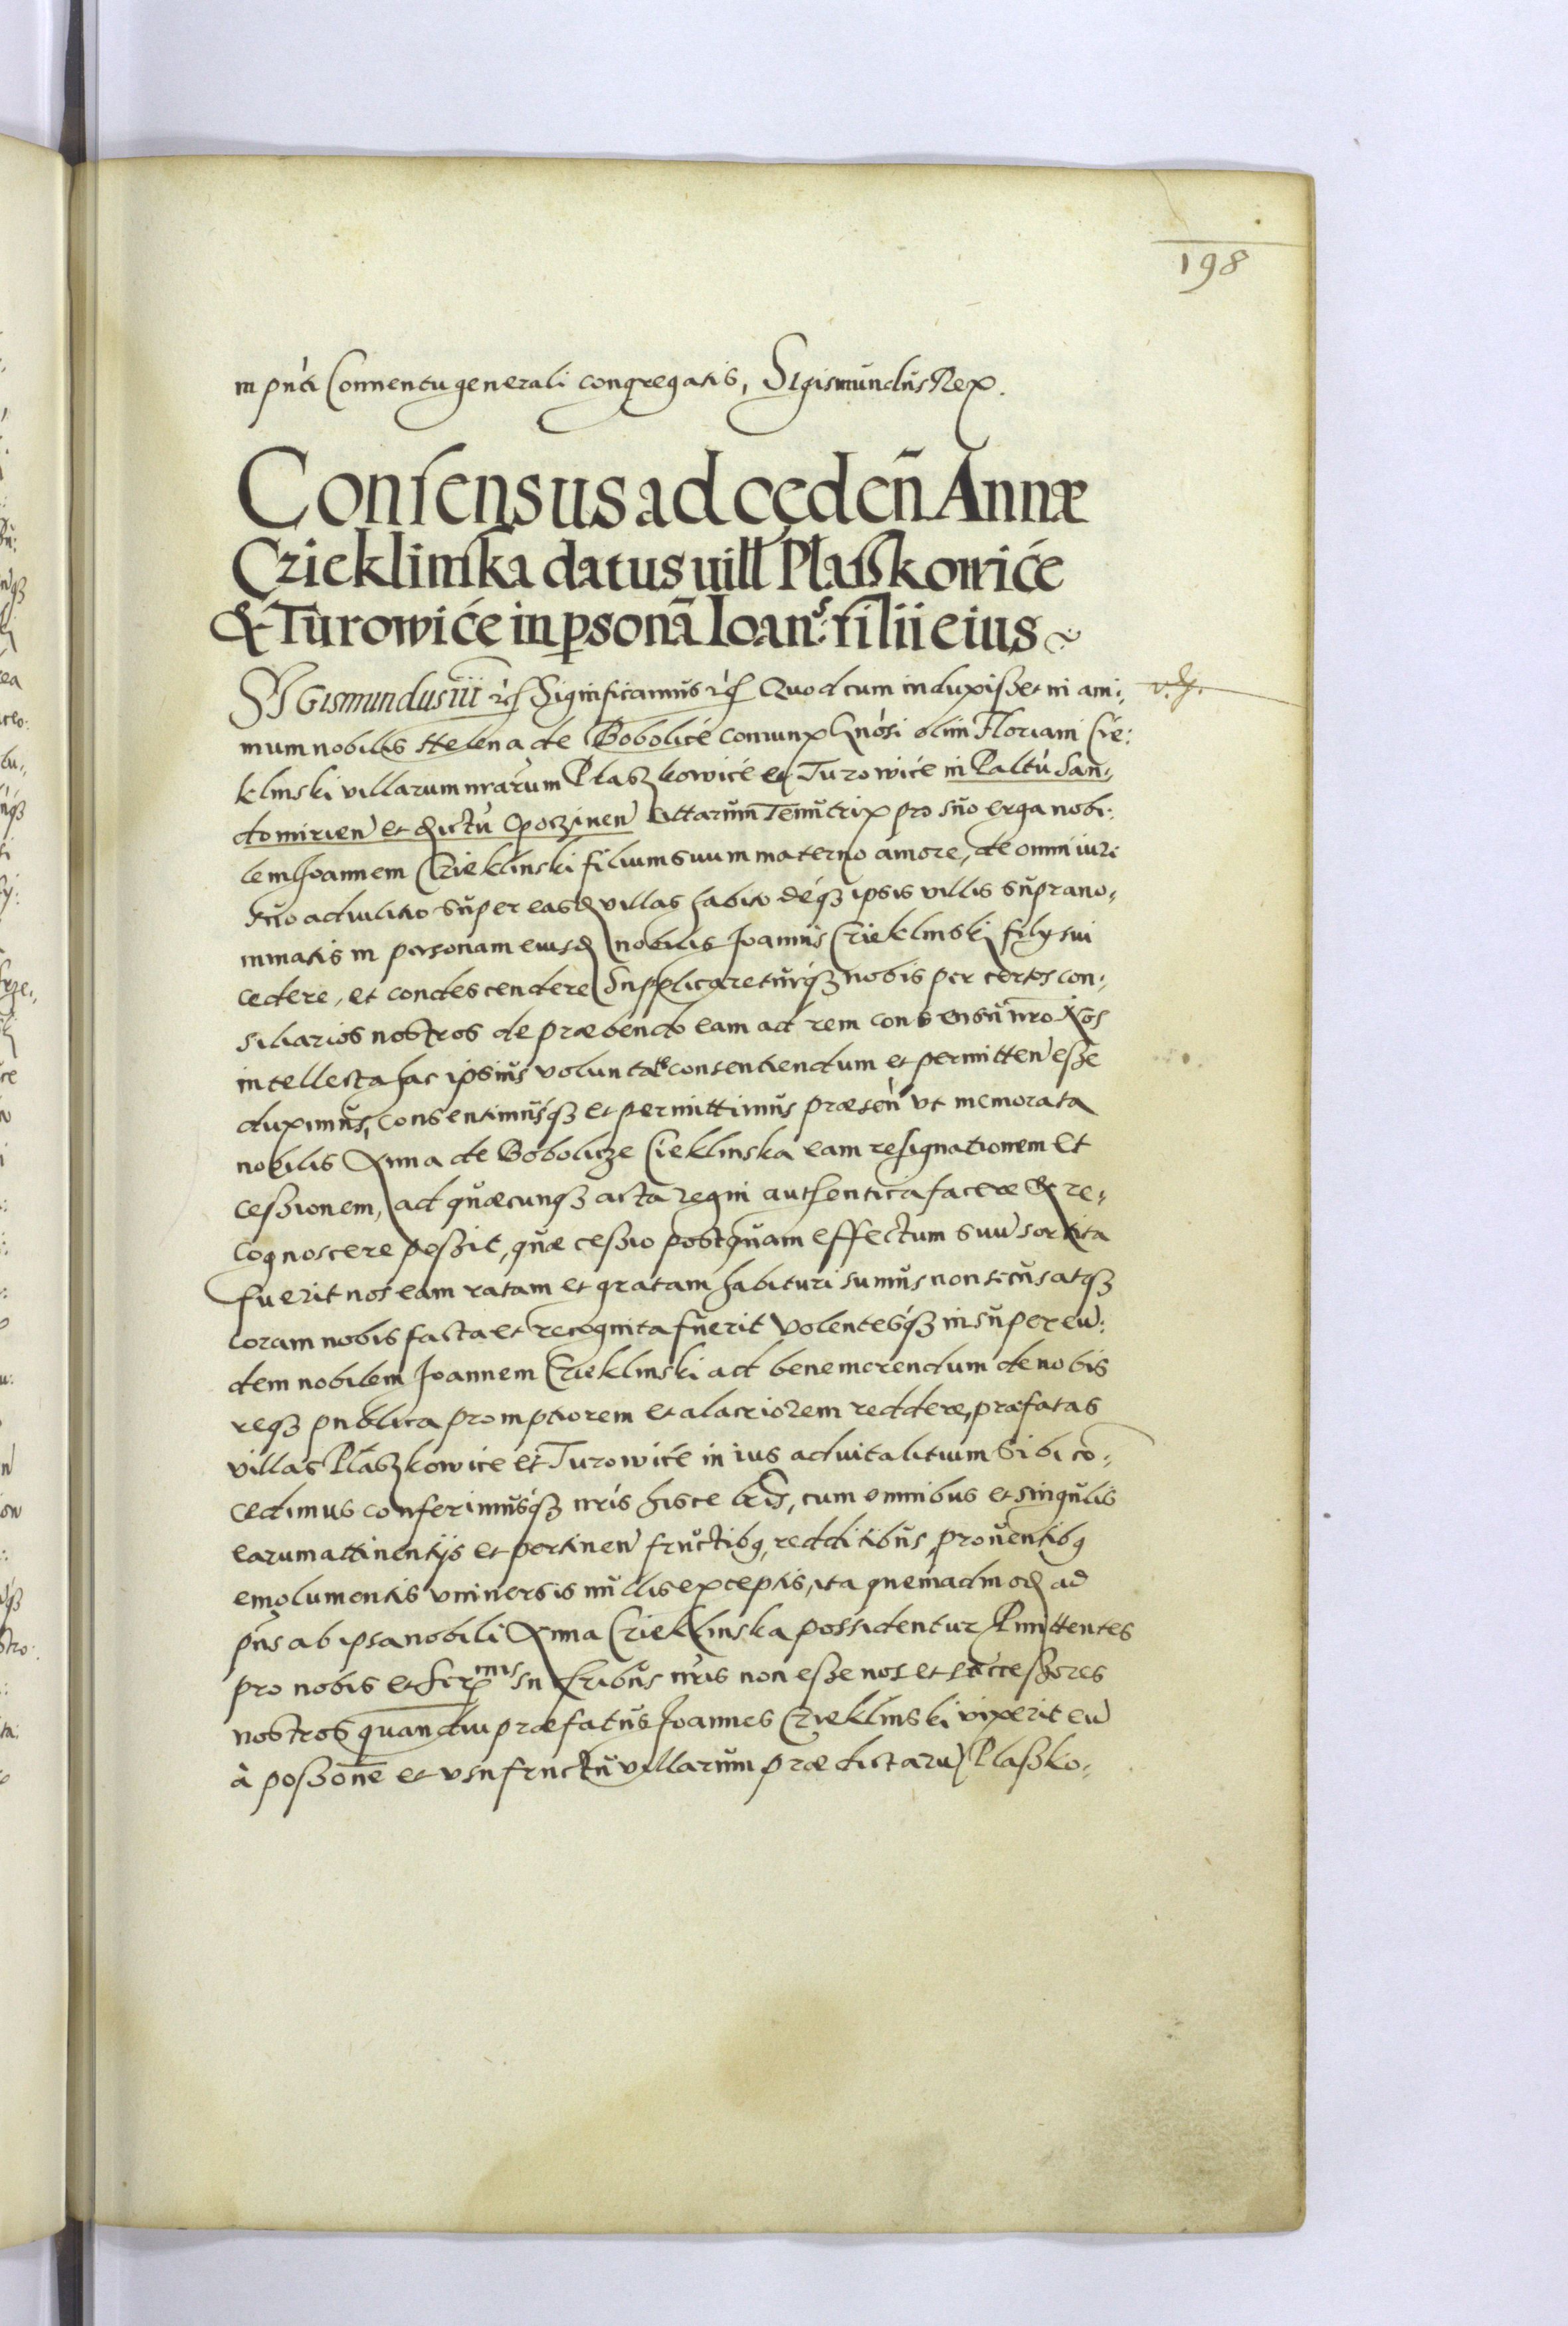 198
in pn̄ti Conuentu generali congregatis, Sigismundus Rex.
Consensus ad cedeñ Annæ
Czieklinska datus uill Plaszkowice
& Turowice in psonā Ioans: filii eius
SIGismundus III rc̄ Significamus rc̄ Quod cum induxisset in ani-
mum nobilis Helena de Bobolice coniunx Gnòsi olim Floriani Cie:
klinski villarum nrarum Plaszkowice et Turowice in Paltù San-
domirien et Dictù Opoczinen sittarum Tenutrix pro suo erga nobi:
lem Joannem Czieklinski filium suum materno amore, de omni iure
suo aduitlitio super easd villas habito déq3 ipsis villis suprano-
minatis in personam eiusd nobilis Joannis Czieklinski filij sui
cedere, et condescendere Supplicareturq3 nobis per certos con-
siliarios nostros de præbendo eam ad rem consensu nro Nos
intellecta hac ipsius voluntate consentiendum et permitten esse
duximus, consentimusq3 et permittimus præsen vt memorata
nobilis Anna de Bobolicze Cieklinska eam resignationem et
cessionem, ad quæcunq3 acta regni authentica facere & re-
cognoscere possit, quæ cessio postquam effectum suū sortita
fuerit nos eam ratam et gratam habituri sumus non secus atq3
coram nobis facta et recognita fuerit Volentesq3 insuper eū-
dem nobilem Joannem Czieklinski ad benemerendum de nobis
req3 publica promptiorem et alacriorem reddere, præfatas
villas Plaszkowice et Turowice in ius aduitalitium sibi cō-
cedimus conferimusq3 nris hisce lris, cum omnibus et singulis
earum attinentijs et pertinen fructibq, redditibus, prouentibq
emolumentis vniuersis nullis exceptis, ita quemadmod ad
pns ab ipsa nobili Anna Czieklinska possidentur Pmittentes
pro nobis et Serᵐⁱˢ succribus nris non esse nos et successores
nostros quamdiu præfatus Joannes Czieklinski vixerit eū
à possonē et vsufructu villarum prædictarū Plaszko-